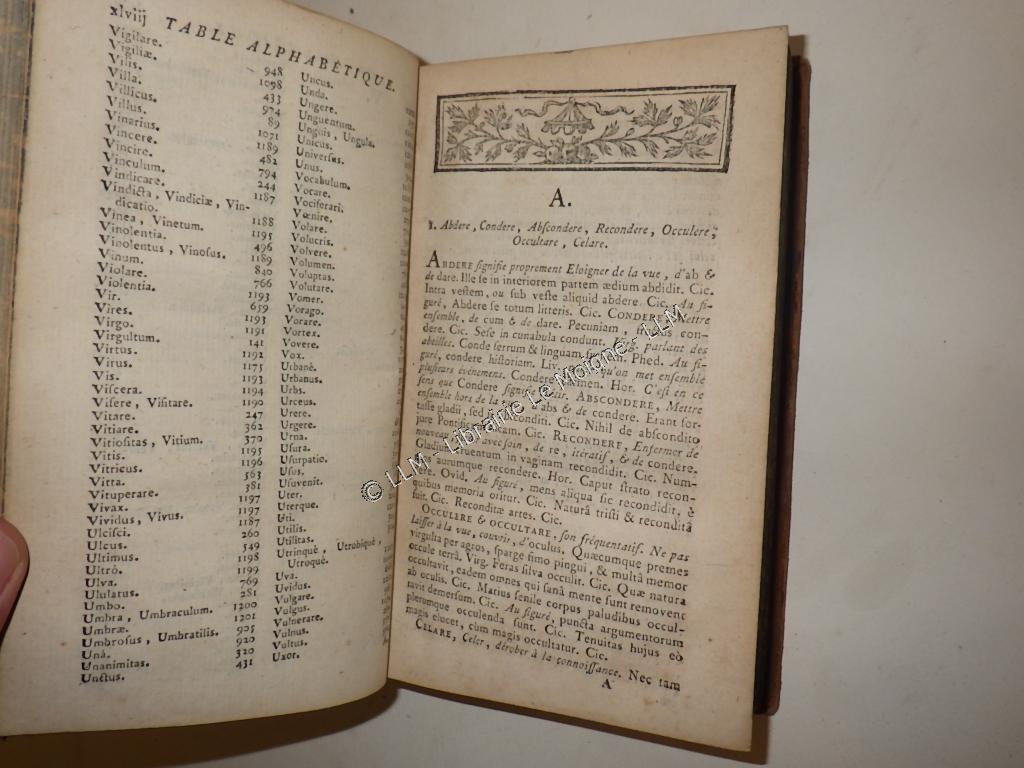 xlviij TABLE ALPHABÉTIQUE.
Vigilare.
Vigiliæ. 948
Vilis. 1098
Villa. 433
Villicus. 974
Villus. 89
Vinarius. 1071
Vincere. 1189
Vincire. 482
Vinculum. 794
Vindicare. 244
Vindicta, Vindiciæ, Vin- 1187
dicatio.
Vinea, Vinetum. 1188
Vinolentia. 1195
Vinolentus, Vinosus. 496
Vinum. 1189
Violare. 840
Violentia. 766
Vir. 1193
Vires. 659
Virgo. 1193
Virgultum. 1191
Virtus. 141
Virus. 1192
Vis. 1175
Viscera. 1193
Visere, Visitare. 1194
Vitare. 1190
Vitiare. 247
Vitiositas, Vitium. 362
Vitis. 370
Vitricus. 1195
Vitta. 1196
Vituperare. 563
Vivax. 381
Vividus, Vivus. 1197
Ulcisci. 1187
Ulcus. 260
Ultimus. 549
Ultrò. 1198
Ulva. 1199
Ululatus. 769
Umbo. 281
Umbra, Umbraculum. 1200
Umbræ. 1201
Umbrosus, Umbratilis. 905
Unà. 920
Unanimitas. 320
Unctus. 431
Uncus.
Unda.
Ungere.
Unguentum.
Unguis, Ungula.
Unicus.
Universus.
Unus.
Vocabulum.
Vocare.
Vociferari.
Vœnire.
Volare.
Volucris.
Volvere.
Volumen.
Voluptas.
Volutare.
Vomer.
Vorago.
Vorare.
Vortex.
Vovere.
Vox.
Urbanè.
Urbanus.
Urbs.
Urceus.
Urere.
Urgere.
Urna.
Usura.
Usurpatio.
Usus.
Usuvenit.
Uter.
Uterque.
Uti.
Utilis.
Utilitas.
Utrinquè, Utrobiquè,
Utroquè.
Uva.
Uvidus.
Vulgare.
Vulgus.
Vulnerare.
Vulnus.
Vultus.
Uxor.
A.
1. Abdere, Condere, Abscondere, Recondere, Occulere,
Occultare, Celare.
ABDERE signifie proprement Eloigner de la vue, d'ab &
de dare. Ille se in interiorem partem ædium abdidit. Cic.
Intra vestem, ou sub veste aliquid abdere. Cic. Au fi-
guré, Abdere se totum litteris. Cic. CONDERE, Mettre
ensemble, de cum & de dare. Pecuniam, fructus con-
dere. Cic. Sese in cunabula condunt. parlant des
abeilles. Conde ferrum & linguam. Phed. Au fi-
guré, condere historiam. Liv. qu'on met ensemble
plusieurs événemens. Condere. Hor. C'est en ce
sens que Condere signifie. ABSCONDERE, Mettre
ensemble hors de la vue, d'abs & de condere. Erant for-
tasse gladii, sed absconditi. Cic. Nihil de abscondito
jure Pontificum dicam. Cic. RECONDERE, Enfermer de
nouveau, avec soin, de re, itératif, & de condere.
Gladium cruentum in vaginam recondidit. Cic. Num-
mos aurumque recondere. Hor. Caput strato recon-
dere. Ovid. Au figuré, mens aliqua sic recondidit, è
quibus memoria oritur. Cic. Naturâ tristi & reconditâ
fuit. Cic. Reconditæ artes. Cic.
OCCULERE & OCCULTARE, son fréquentatif. Ne pas
laisser à la vue, couvrir, d'oculus. Quæcumque premes
virgulta per agros, sparge fimo pingui, & multâ memor
occule terrâ. Virg. Feras silva occulit. Cic. Quæ natura
occultavit, eadem omnes qui sanâ mente sunt removent
ab oculis. Cic. Marius senile corpus paludibus occul-
tavit demersum. Cic. Au figuré, puncta argumentorum
plerumque occulenda sunt. Cic. Tenuitas hujus eò
magis elucet, cùm magis occultatur. Cic.
CELARE, Celer, dérober à la connoissance. Nec tam
A
© LLM - Librairie Le Moigne - LLM